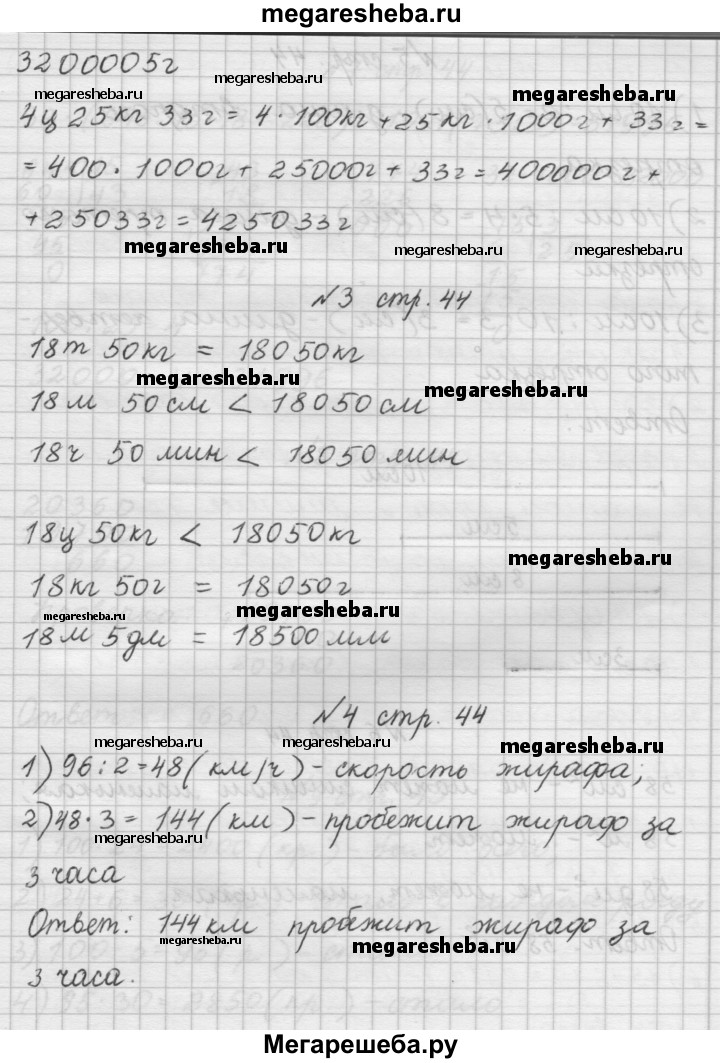 megaresheba.ru
3200005г
megaresheba.ru
megaresheba.ru
megaresheba.ru
4ц 25кг 33г = 4 · 100кг + 25кг · 1000г + 33г =
= 400 · 1000г + 25000г + 33г = 400000г +
+ 25033г = 425033г
megaresheba.ru
megaresheba.ru
megaresheba.ru
№3 стр. 44
18т 50кг = 18050кг
megaresheba.ru
megaresheba.ru
18м 50см < 18050см
18ч 50 мин < 18050 мин
18ц 50кг < 18050кг
megaresheba.ru
18кг 50г = 18050г
megaresheba.ru
megaresheba.ru
18м 5дм = 18500 мм
№4 стр. 44
megaresheba.ru
megaresheba.ru
1) 96 : 2 = 48 (км/ч) - скорость жирафа;
2) 48 · 3 = 144 (км) - пробежит жираф за
megaresheba.ru
megaresheba.ru
3 часа
Ответ: 144км пробежит жираф за
megaresheba.ru
megaresheba.ru
3 часа.
Мегарешеба.ру